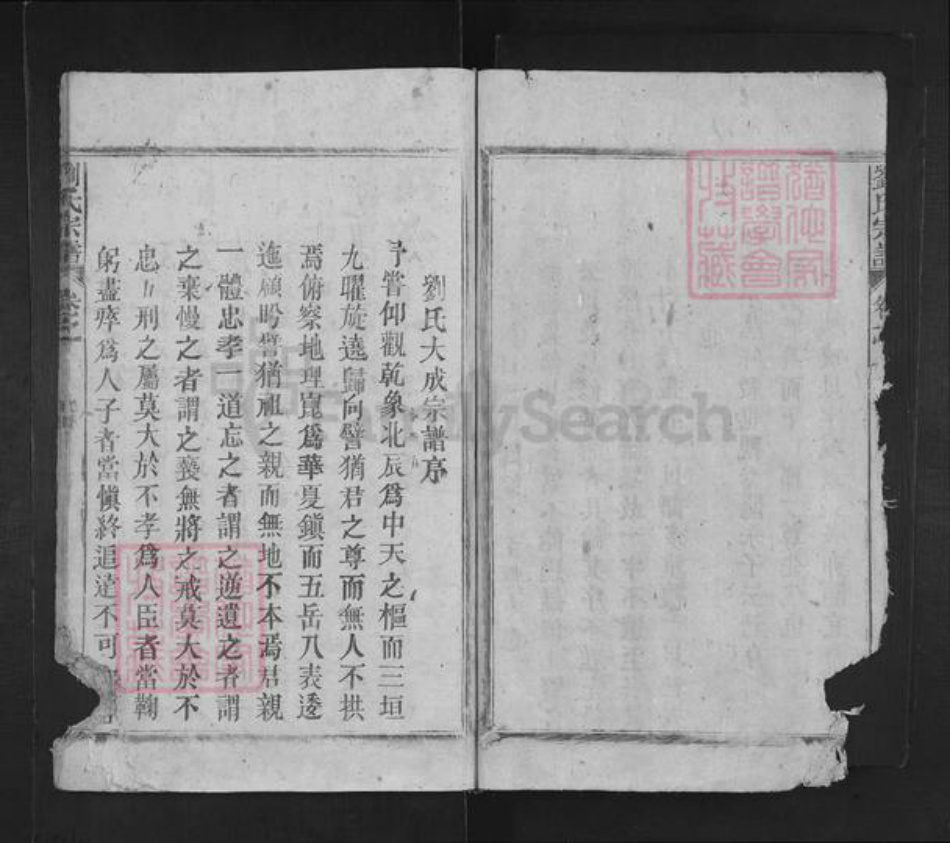 劉氏宗譜
卷之一
猶他家譜學會收藏
劉氏大成宗譜序
予嘗仰觀乾象北辰爲中天之樞而三垣
九曜旋遶歸向譬猶君之尊而無人不拱
焉俯察地理崑爲華夏鎭而五岳八表逶
迤顧盼譬猶祖之親而無地不本焉君親
一體忠孝一道忘之者謂之逆遺之者謂
之棄慢之者謂之褻無將之戒莫大於不
忠五刑之屬莫大於不孝爲人臣者當鞠
躬盡瘁爲人子者當愼終追遠不可
劉氏宗譜
卷之一
FamilySearch